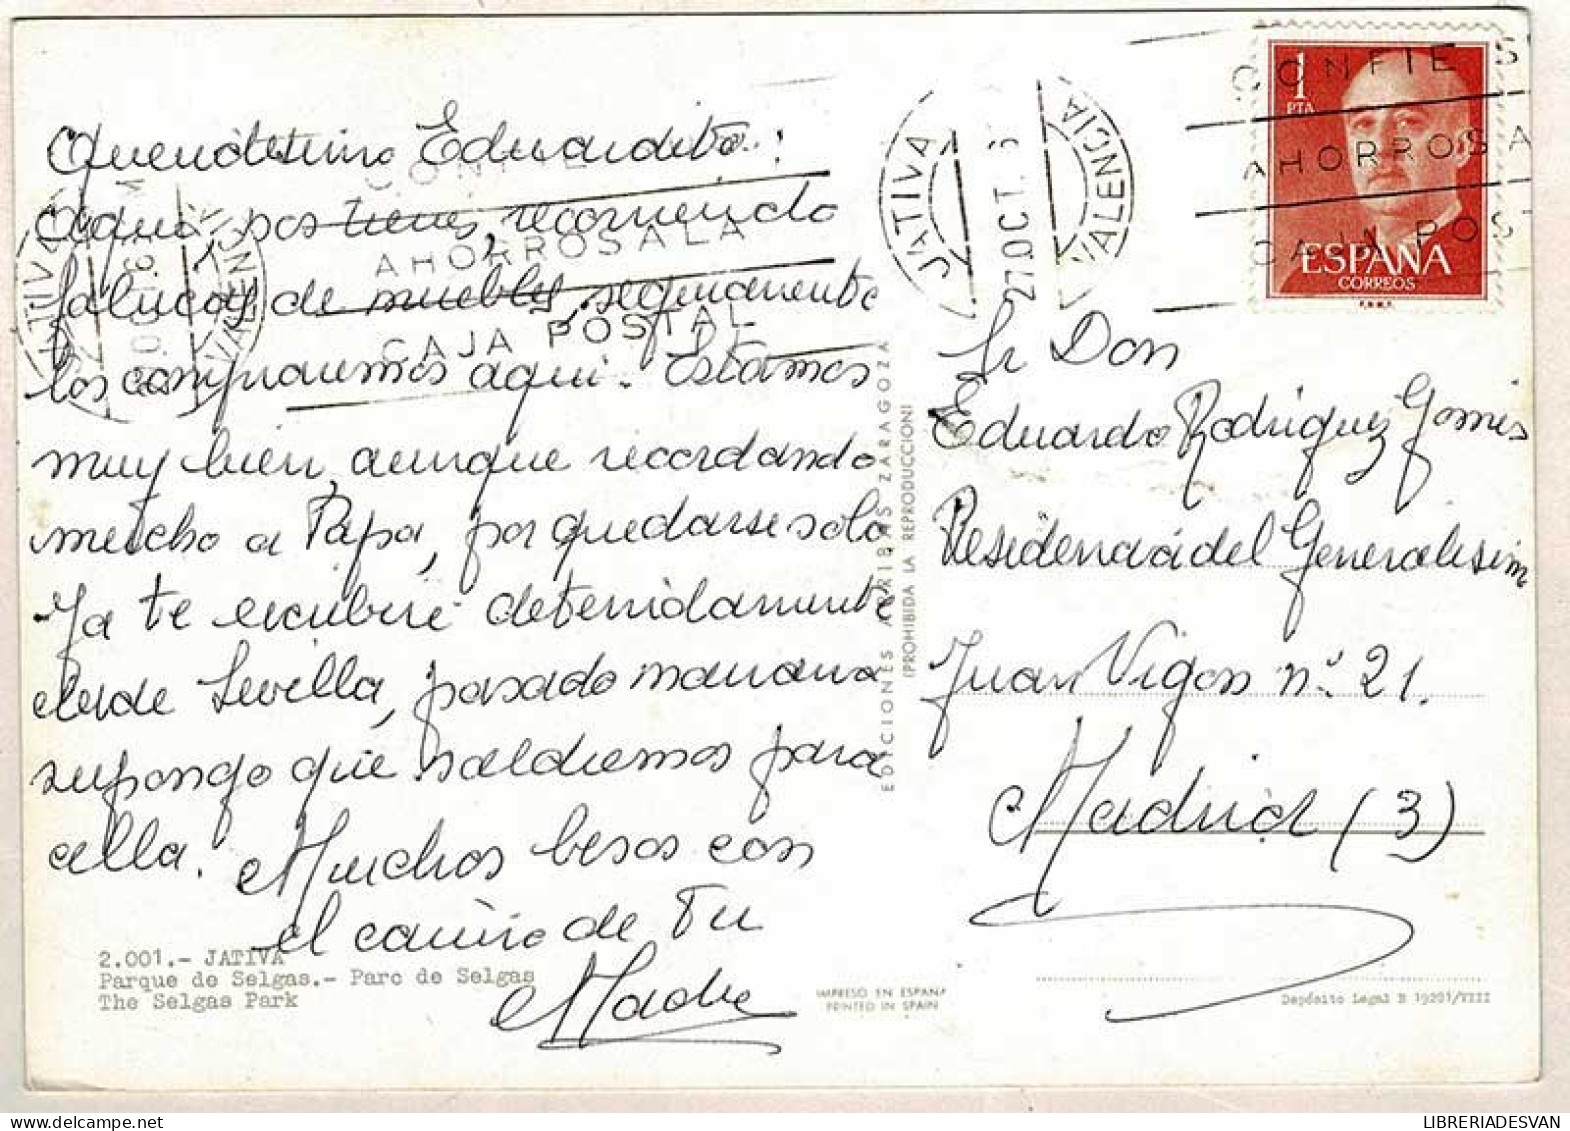 Queridísimo Eduardito:
Aqui pos tienes, recorriendo
fabricas de muebles, seguramente
los compraremos aqui. Estamos
muy bien, aunque recordando
mucho a Papa, por quedarse solo
Ya te escribiré detenidamente
desde Sevilla, pasado mañana
supongo que saldremos para
alla. Muchos besos con
el cariño de Tu
Madre
2.001.- JATIVA
Parque de Selgas.- Parc de Selgas
The Selgas Park
EDICIONES ARRIBAS ZARAGOZA
(PROHIBIDA LA REPRODUCCION)
IMPRESO EN ESPAÑA
PRINTED IN SPAIN
JATIVA
27 OCT.
VALENCIA
CONFIE S
AHORROS A
CAJA POST
1
PTA
ESPAÑA
CORREOS
F.N.M.T.
CONFIE
AHORROS A LA
CAJA POSTAL
Sr Don
Eduardo Rodriguez Gomis
Residencia del Generalisim
Juan Vigon nº 21.
Madrid (3)
Depósito Legal B 19201/VIII
LIBRERIADESVAN